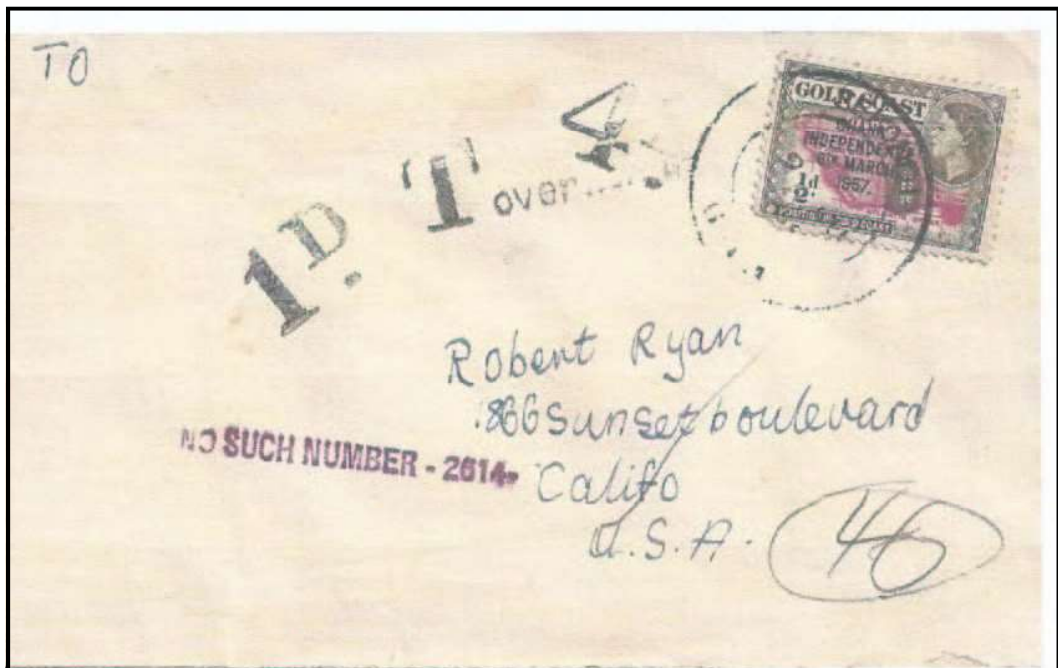 TO
GOLD COAST
GHANA
INDEPENDENCE
6TH MARCH
1957.
½d
1D.
T
4
over
Robert Ryan
866 Sunset boulevard
Califo
U.S.A.
NO SUCH NUMBER - 2614-
46